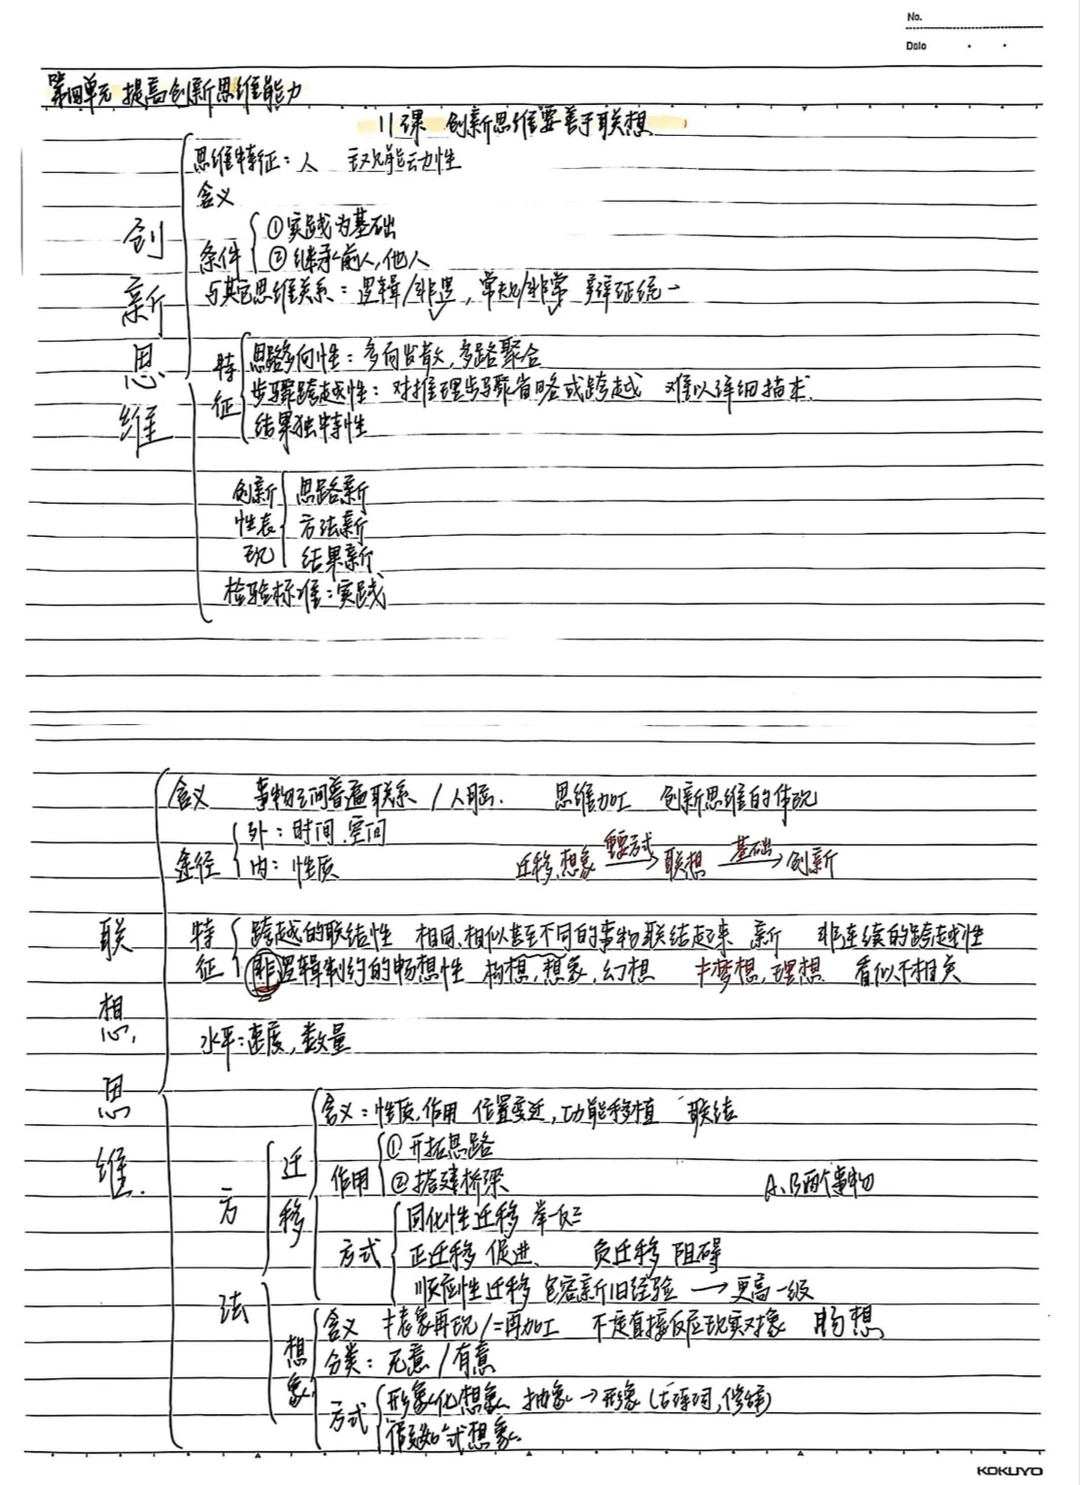 No.
Date
第四单元 提高创新思维能力
11课 创新思维要善于联想
创新思维
思维特征：人 主观能动性
含义
条件
①实践为基础
②继承前人,他人
与其它思维关系：逻辑/非逻,常规/非常 辩证统一
特征
思路多向性：多向发散,多路聚合
步骤跨越性：对推理步骤省略或跨越 难以详细描述.
结果独特性
创新性表现
思路新
方法新
结果新
检验标准：实践
联想思维.
含义 事物之间普遍联系/人脑. 思维加工 创新思维的体现
途径
外：时间.空间
内：性质
迁移,想象 重要方式→ 联想 基础→ 创新
特征
跨越的联结性 相同、相似甚至不同的事物联结起来 新 非连续的跨越性
非逻辑制约的畅想性 构想,想象,幻想 ≠梦想,理想 看似不相关
水平：速度,数量
方法
迁移
含义：性质,作用 位置变迁,功能移植 联结
作用
①开拓思路
②搭建桥梁
A、B两个事物
方式
同化性迁移 举一反三
正迁移 促进. 负迁移 阻碍
顺应性迁移 包容新旧经验 → 更高一级
想象
含义 ≠表象再现/=再加工 不是直接反应现实对象
分类：无意/有意
方式
形象化想象 抽象→形象(古诗词,修辞)
假想式想象
KOKUYO